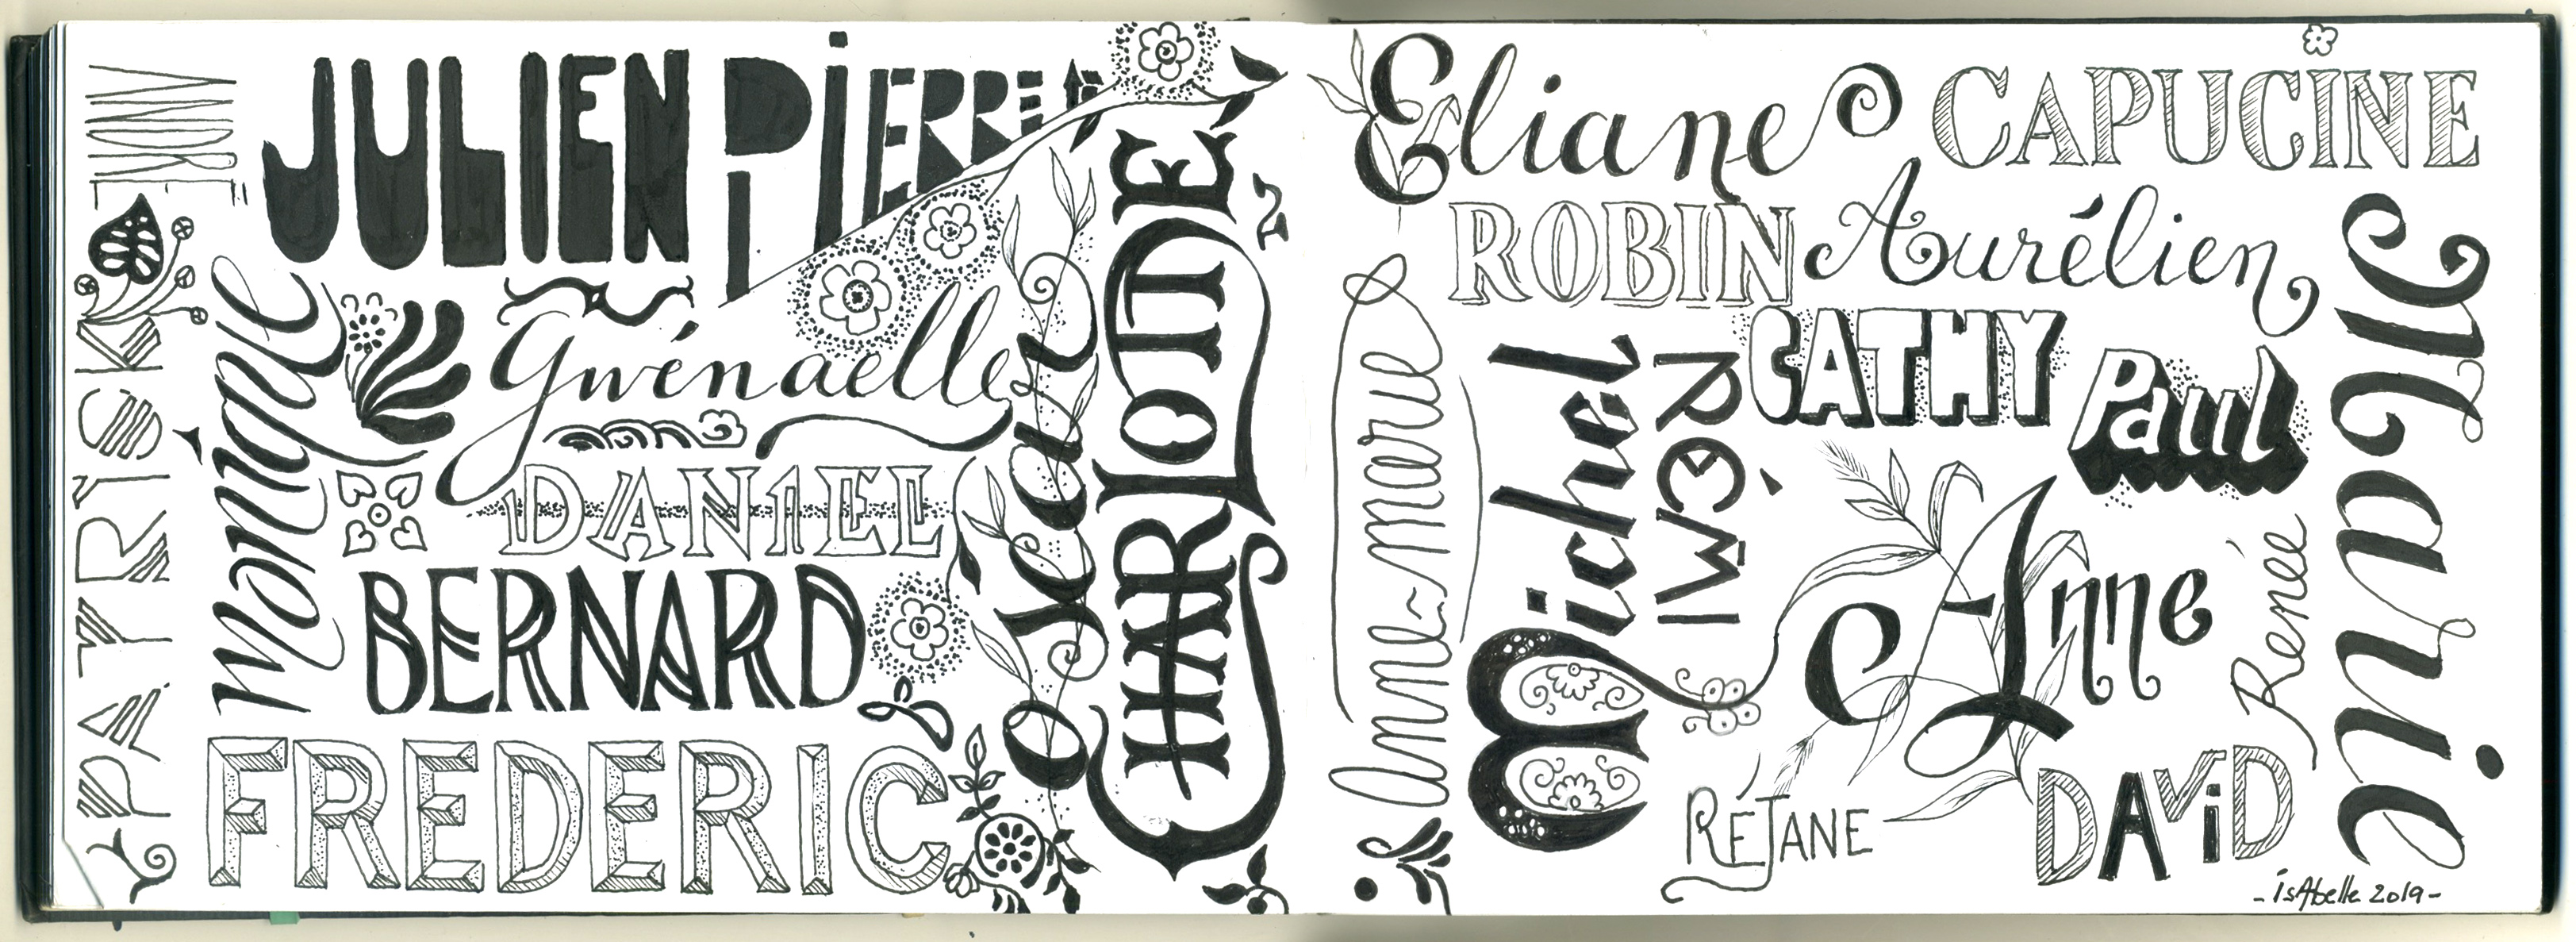 JULIEN
PIERRE
monique
Gwénaelle
DANIEL
BERNARD
FREDERIC
Jean
CHARLOTTE
Eliane
CAPUCINE
ROBIN
Aurélien
anne-marie
Michel
RÉMI
CATHY
Paul
Anne
Renée
RÉJANE
DAViD
Marie
- isAbelle 2019 -